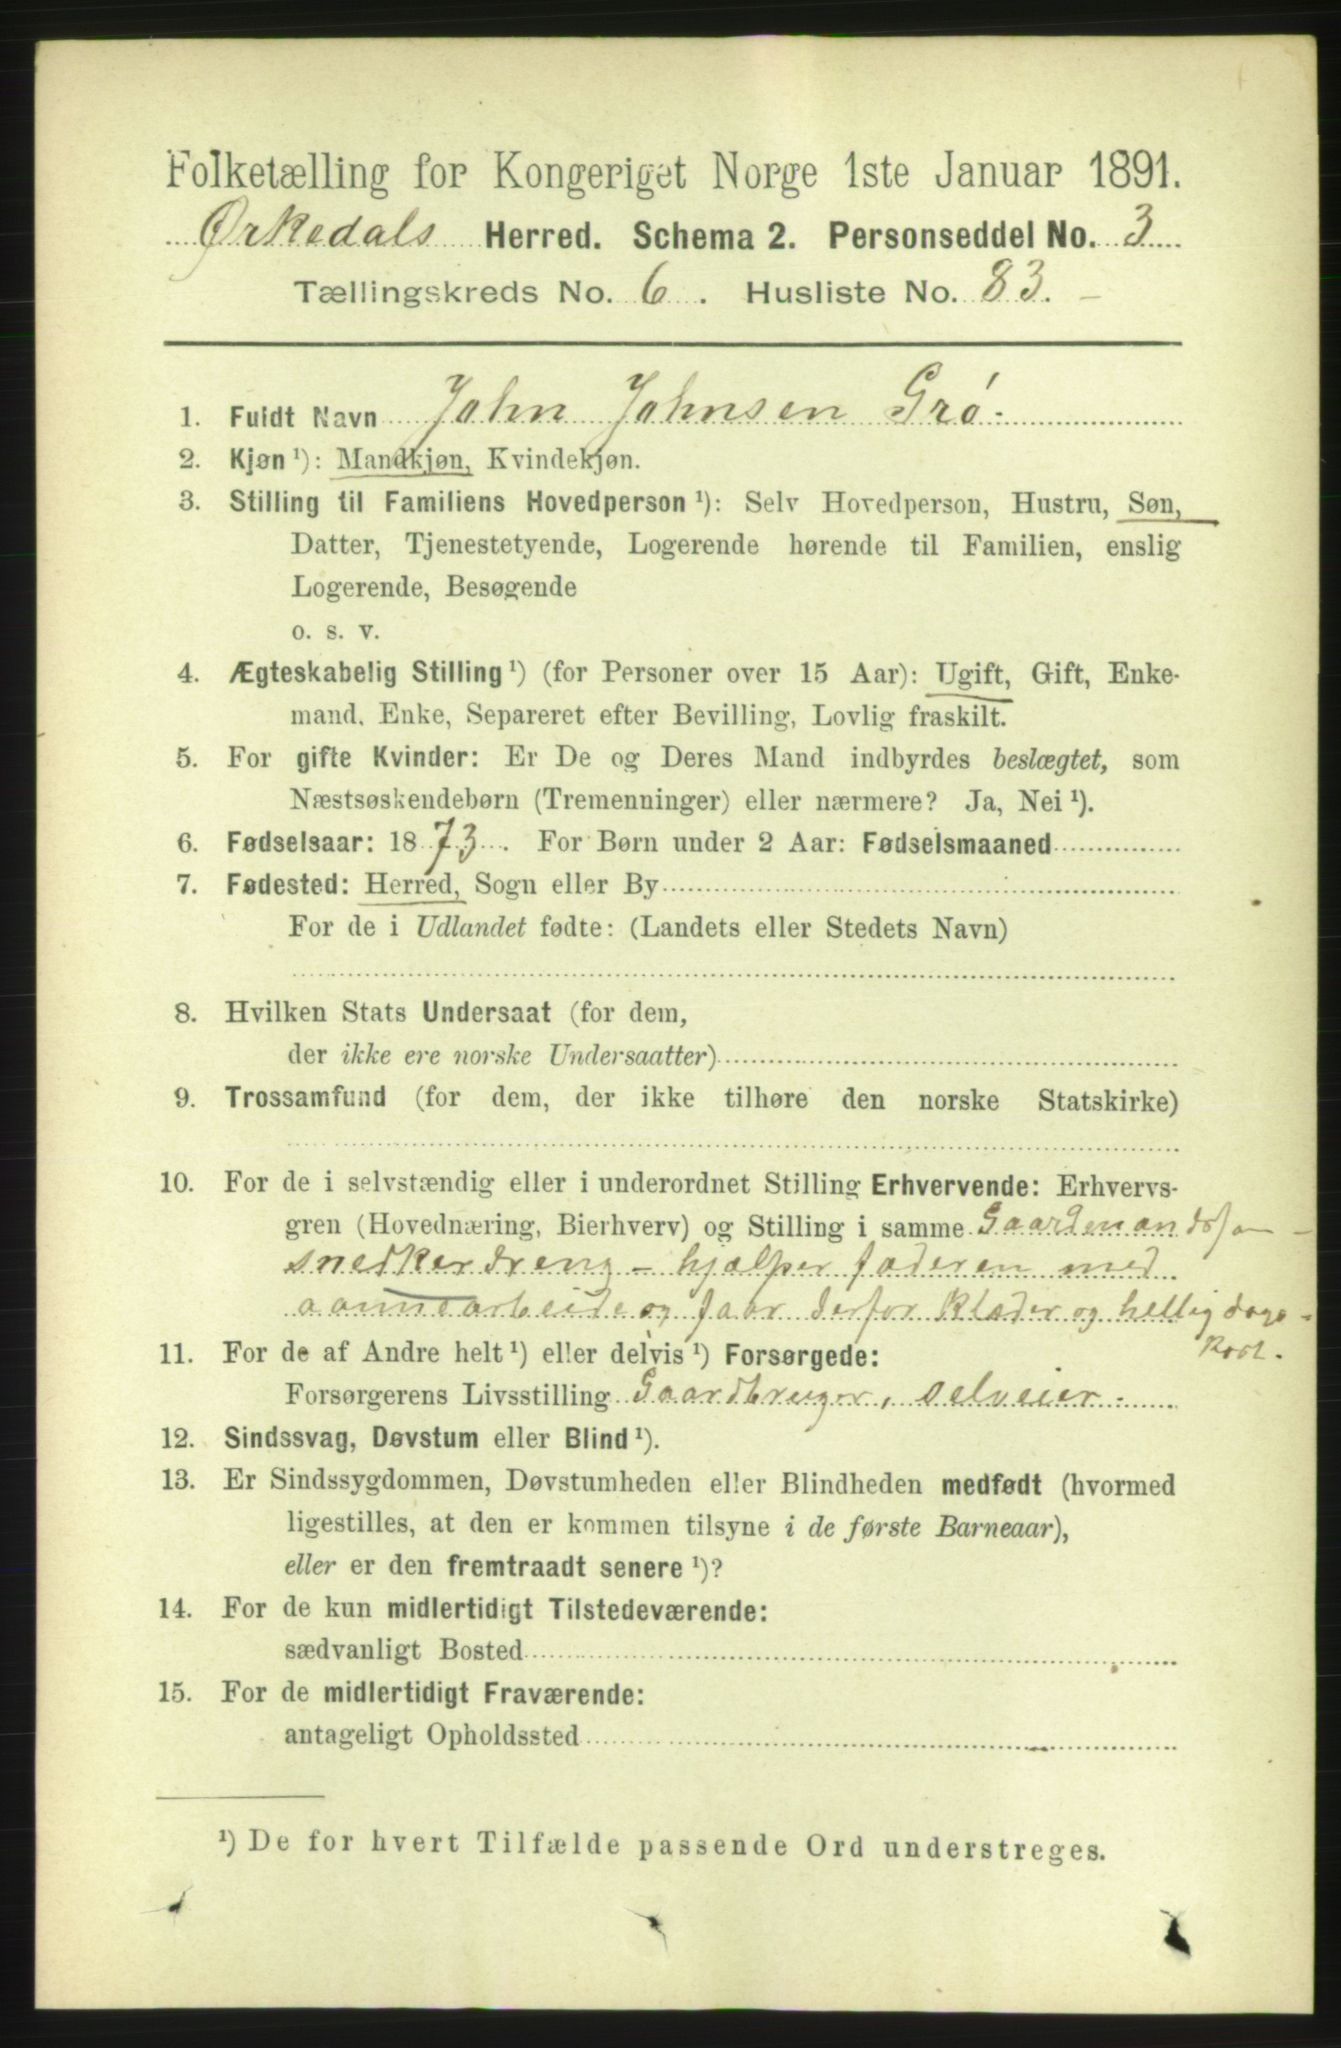 Folketælling for Kongeriget Norge 1ste Januar 1891.
Ørkedals Herred. Schema 2. Personseddel No. 3
Tællingskreds No. 6. Husliste No. 83.
1. Fuldt Navn John Johnsen Grø.
2. Kjøn ¹): Mandkjøn, Kvindekjøn.
3. Stilling til Familiens Hovedperson ¹): Selv Hovedperson, Hustru, Søn,
Datter, Tjenestetyende, Logerende hørende til Familien, enslig
Logerende, Besøgende
o. s. v.
4. Ægteskabelig Stilling ¹) (for Personer over 15 Aar): Ugift, Gift, Enke-
mand, Enke, Separeret efter Bevilling, Lovlig fraskilt.
5. For gifte Kvinder: Er De og Deres Mand indbyrdes beslægtet, som
Næstsøskendebørn (Tremenninger) eller nærmere? Ja, Nei ¹).
6. Fødselsaar: 1873. For Børn under 2 Aar: Fødselsmaaned
7. Fødested: Herred, Sogn eller By
For de i Udlandet fødte: (Landets eller Stedets Navn)
8. Hvilken Stats Undersaat (for dem,
der ikke ere norske Undersaatter)
9. Trossamfund (for dem, der ikke tilhøre den norske Statskirke)
10. For de i selvstændig eller i underordnet Stilling Erhvervende: Erhvervs-
gren (Hovednæring, Bierhverv) og Stilling i samme Gaardmandssøn -
snedkerdreng - hjælper faderen med
aannearbeide og faar derfor klæder og helligdags-
kost.
11. For de af Andre helt ¹) eller delvis ¹) Forsørgede:
Forsørgerens Livsstilling Gaardbruger, selveier.
12. Sindssvag, Døvstum eller Blind ¹).
13. Er Sindssygdommen, Døvstumheden eller Blindheden medfødt (hvormed
ligestilles, at den er kommen tilsyne i de første Barneaar),
eller er den fremtraadt senere ¹)?
14. For de kun midlertidigt Tilstedeværende:
sædvanligt Bosted
15. For de midlertidigt Fraværende:
antageligt Opholdssted
¹) De for hvert Tilfælde passende Ord understreges.